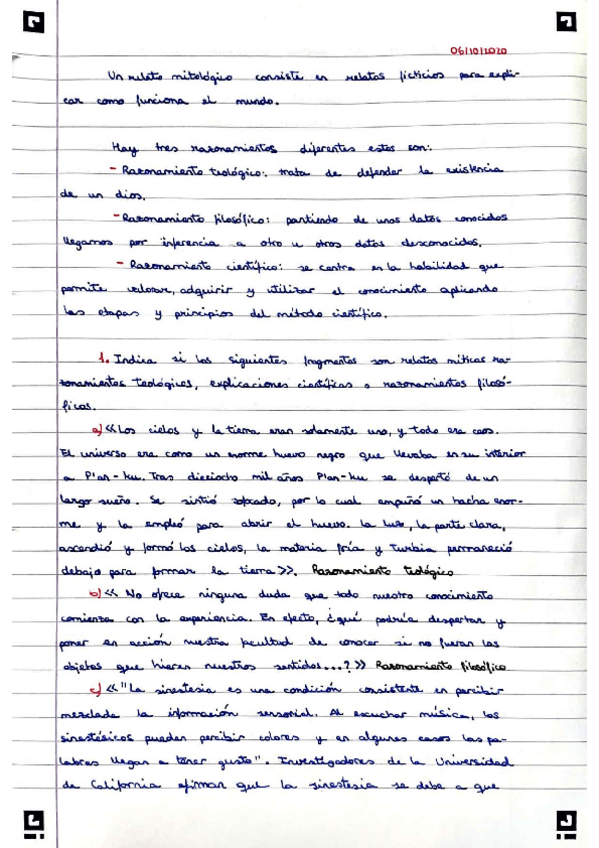 06/10/2020
Un relato mitológico consiste en relatos ficticios para expli-
car como funciona el mundo.
Hay tres razonamientos diferentes estos son:
- Razonamiento teológico: trata de defender la existencia
de un dios.
- Razonamiento filosófico: partiendo de unos datos conocidos
llegamos por inferencia a otro u otros datos desconocidos.
- Razonamiento científico: se centra en la habilidad que
permite valorar, adquirir y utilizar el conocimiento aplicando
las etapas y principios del método científico.
1. Indica si los siguientes fragmentos son relatos míticos ra-
zonamientos teológicos, explicaciones científicas o razonamientos filosó-
ficos.
a) «Los cielos y la tierra eran solamente uno, y todo era caos.
El universo era como un enorme huevo negro que llevaba en su interior
a P'an-ku. Tras dieciocho mil años P'an-ku se despertó de un
largo sueño. Se sintió sofocado, por lo cual empuñó un hacha enor-
me y la empleó para abrir el huevo. La luz, la parte clara,
ascendió y formó los cielos, la materia fría y turbia permaneció
debajo para formar la tierra». Razonamiento teológico
b) « No ofrece ninguna duda que todo nuestro conocimiento
comienza con la experiencia. En efecto, ¿qué podría despertar y
poner en acción nuestra facultad de conocer si no fueran los
objetos que hieren nuestros sentidos...?» Razonamiento filosófico
c) «"La sinestesia es una condición consistente en percibir
mezclada la información sensorial. Al escuchar música, los
sinestésicos pueden percibir colores y en algunos casos las pa-
labras llegan a tener gusto". Investigadores de la Universidad
de California afirman que la sinestesia se debe a que